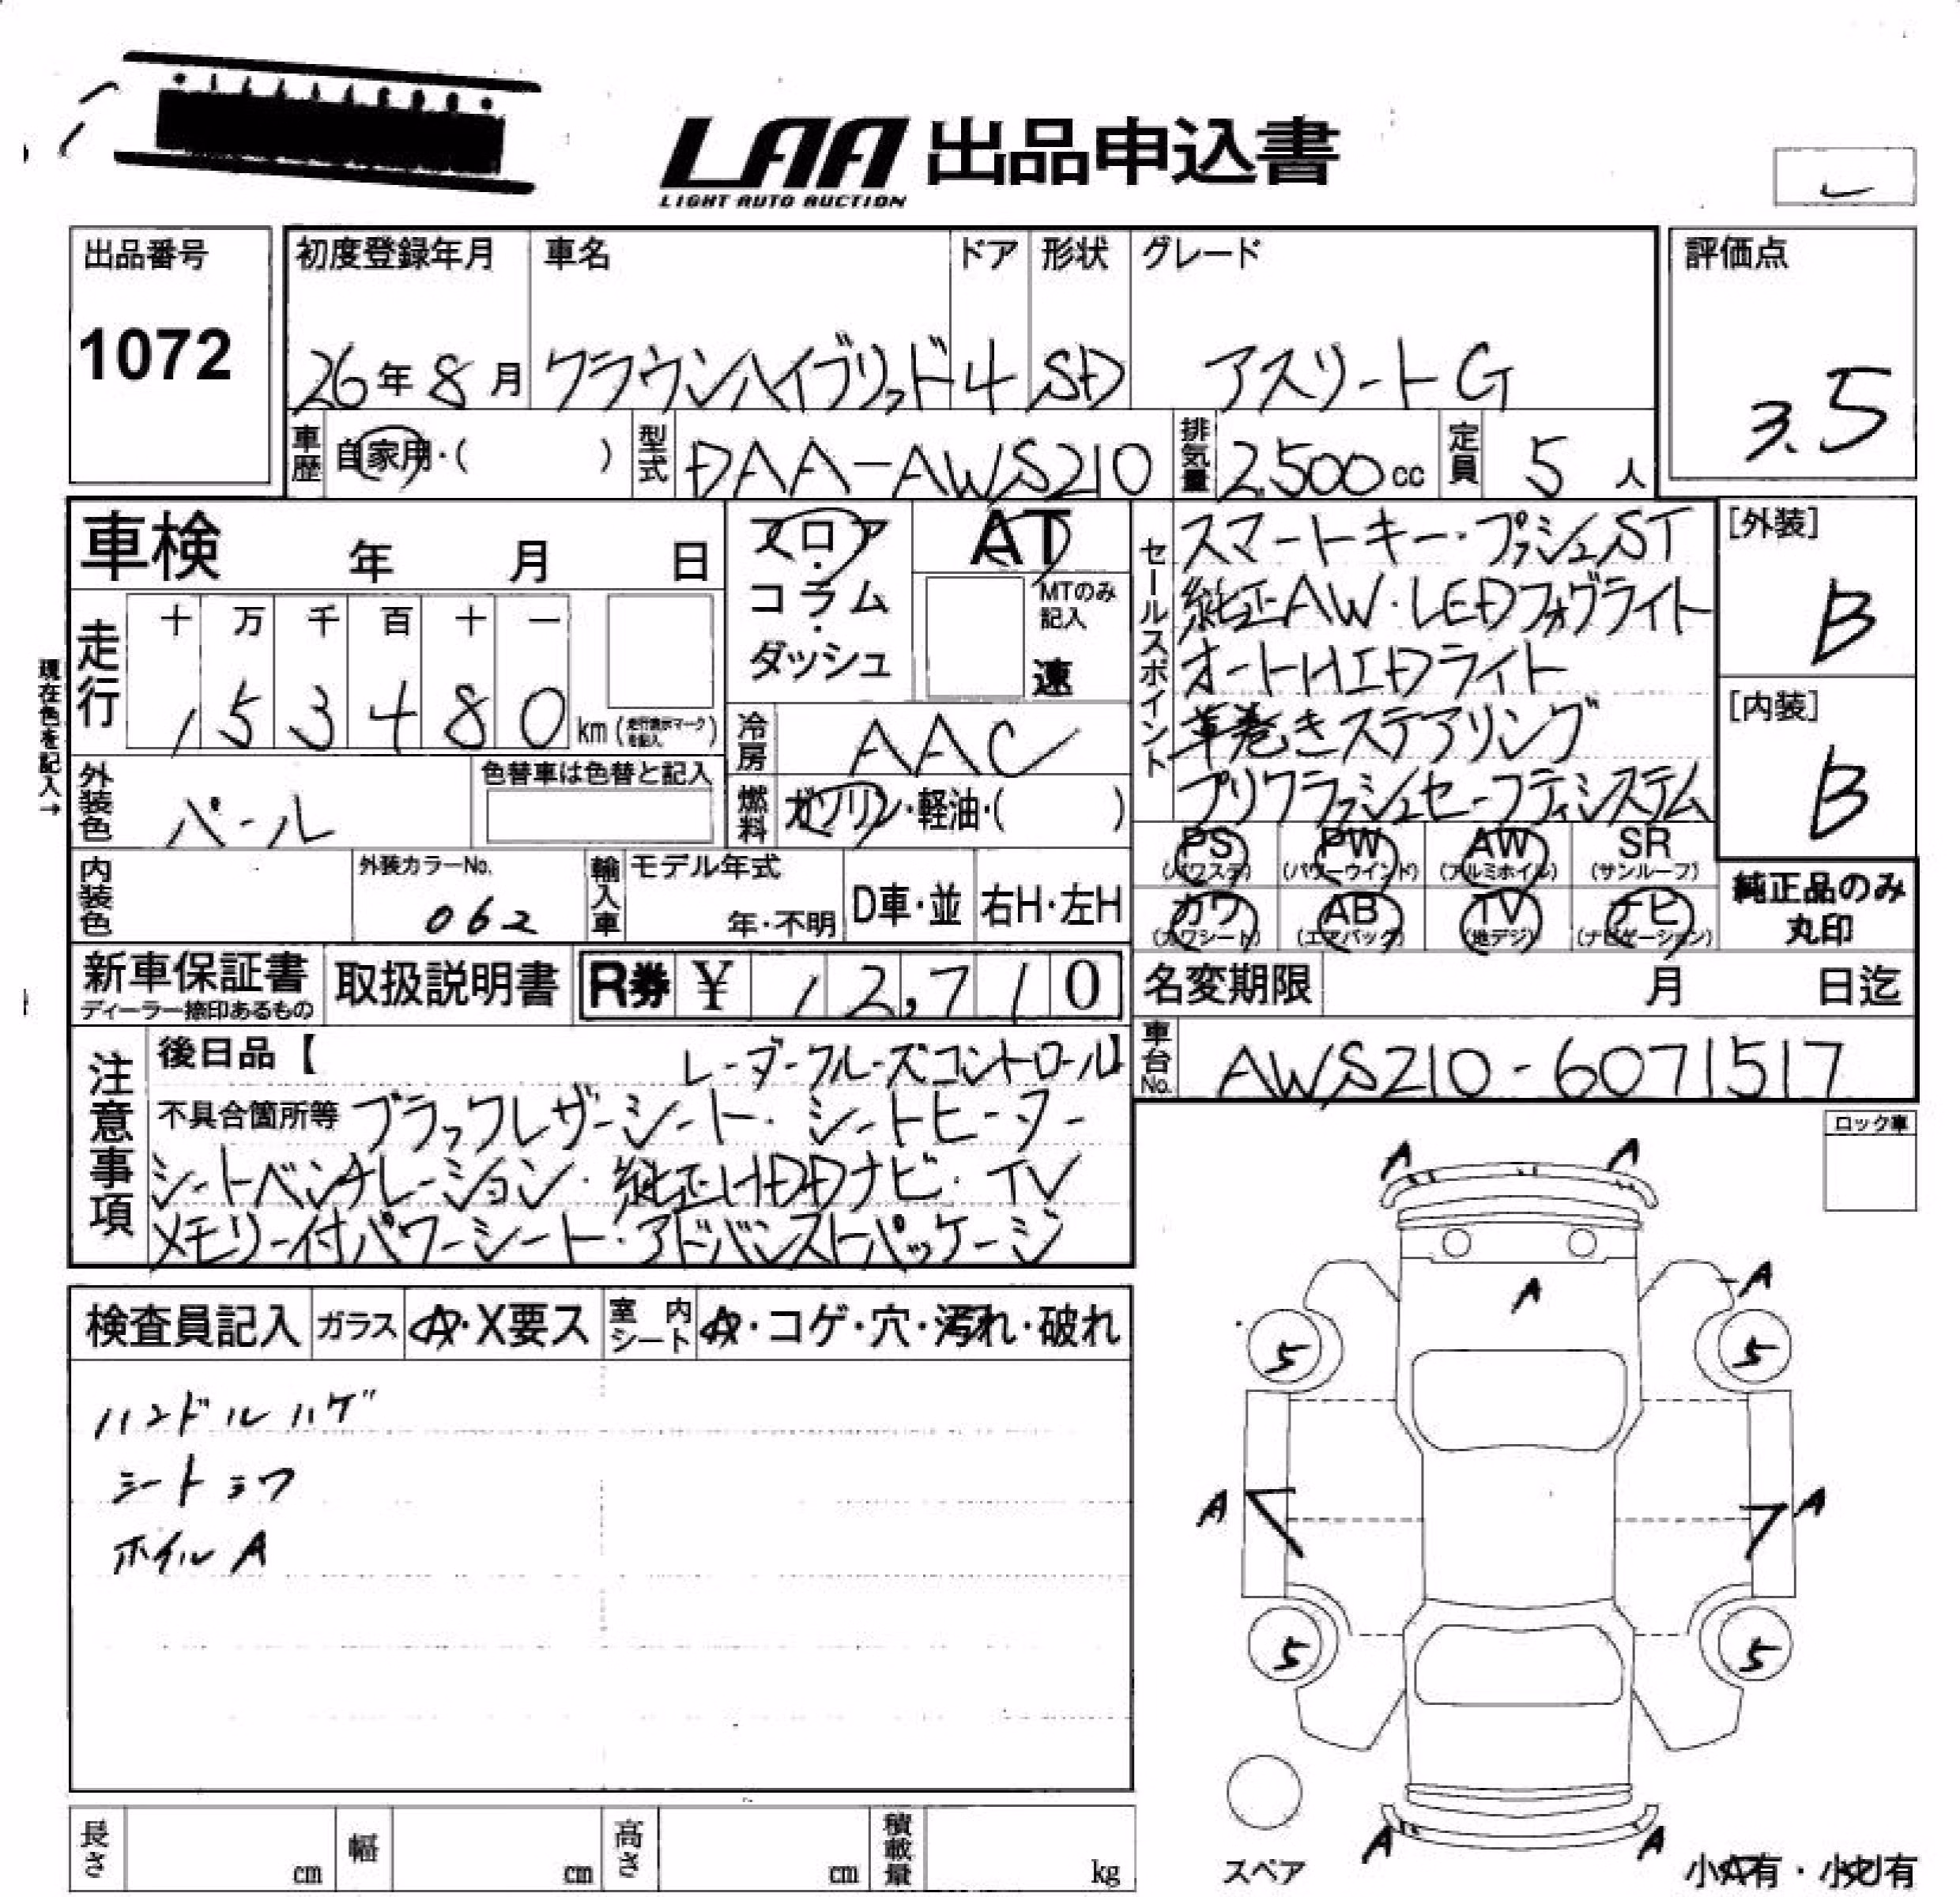 LAA 出品申込書
LIGHT AUTO AUCTION
出品番号
1072
初度登録年月
26年8月
車名
クラウンハイブリッド
ドア
4
形状
SD
グレード
アスリートG
評価点
3.5
車歴
自家用・( )
型式
DAA-AWS210
排気量
2,500cc
定員
5人
車検 年 月 日
フロア
コラム
ダッシュ
AT
MTのみ
記入
速
セールスポイント
スマートキー・プッシュST
純正AW・LEDフォグライト
オートHIDライト
革巻きステアリング
プリクラッシュセーフティシステム
[外装]
B
[内装]
B
現在色を記入→
走行
十 万 千 百 十 一
1 5 3 4 8 0 km (走行表示マークを記入)
冷房
AAC
外装色
パール
色替車は色替と記入
燃料
ガソリン・軽油・( )
PS
(パワステ)
PW
(パワーウインド)
AW
(アルミホイル)
SR
(サンルーフ)
カワ
(カワシート)
AB
(エアバッグ)
TV
(地デジ)
ナビ
(ナビゲーション)
純正品のみ
丸印
内装色
外装カラーNo.
062
輸入車
モデル年式
年・不明
D車・並
右H・左H
新車保証書
ディーラー捺印あるもの
取扱説明書
R券 ¥ 12,710
名変期限 月 日迄
車台No.
AWS210-6071517
注意事項
後日品【 レーダークルーズコントロール】
不具合箇所等 ブラックレザーシート・シートヒーター
シートベンチレーション・純正HDDナビ・TV
メモリー付パワーシート・アドバンストパッケージ
ロック車
検査員記入 ガラス Ⓐ・X要ス 室内シート Ⓐ・コゲ・穴・汚れ・破れ
ハンドルハゲ
シートシワ
ホイルA
A A
A
A
5 5
A A
5 5
A A
スペア
小Ⓐ有・小凹有
長さ cm
幅 cm
高さ cm
積載量 kg